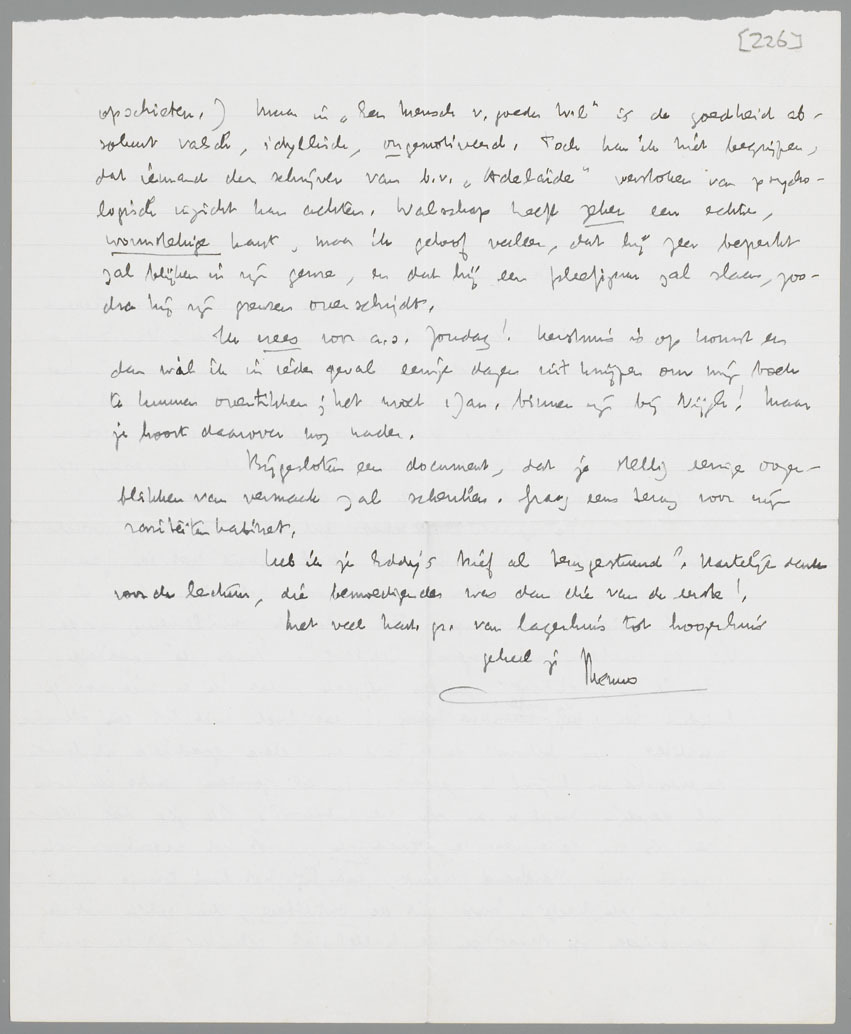 [226]
opschieten.) Maar in „Een Mensch v. goeden Wil” is de goedheid ab-
soluut valsch, idyllisch, ongemotiveerd. Toch kan ik niet begrijpen,
dat iemand den schrijver van b.v. „Adelaïde” verstoken van psycho-
logisch inzicht kan achten. Walschap heeft zeker een echte,
wormstekige kant, maar ik geloof veleer, dat hij zeer beperkt
zal blijken in zijn genre, en dat hij een pleefiguur zal slaan, zoo-
dra hij zijn grenzen overschrijdt.
Ik vrees voor a.s. Zondag! Kerstmis is op komst en
dan wil ik in ieder geval eenige dagen uitknijpen om mijn boek
te kunnen overtikken; het moet 1 Jan. binnen zijn bij Nijgh! Maar
je hoort daarover nog nader.
Bijgesloten een document, dat je stellig eenige oogen-
blikken van vermaak zal schenken. Graag eens terug voor mijn
rariteitenkabinet.
Heb ik je Eddy's brief al teruggestuurd? Hartelijk dank
voor de lectuur, die bemoedigender was dan die van de eerste!
Met veel hart. gr. van lagerhuis tot hoogerhuis
geheel je Menno